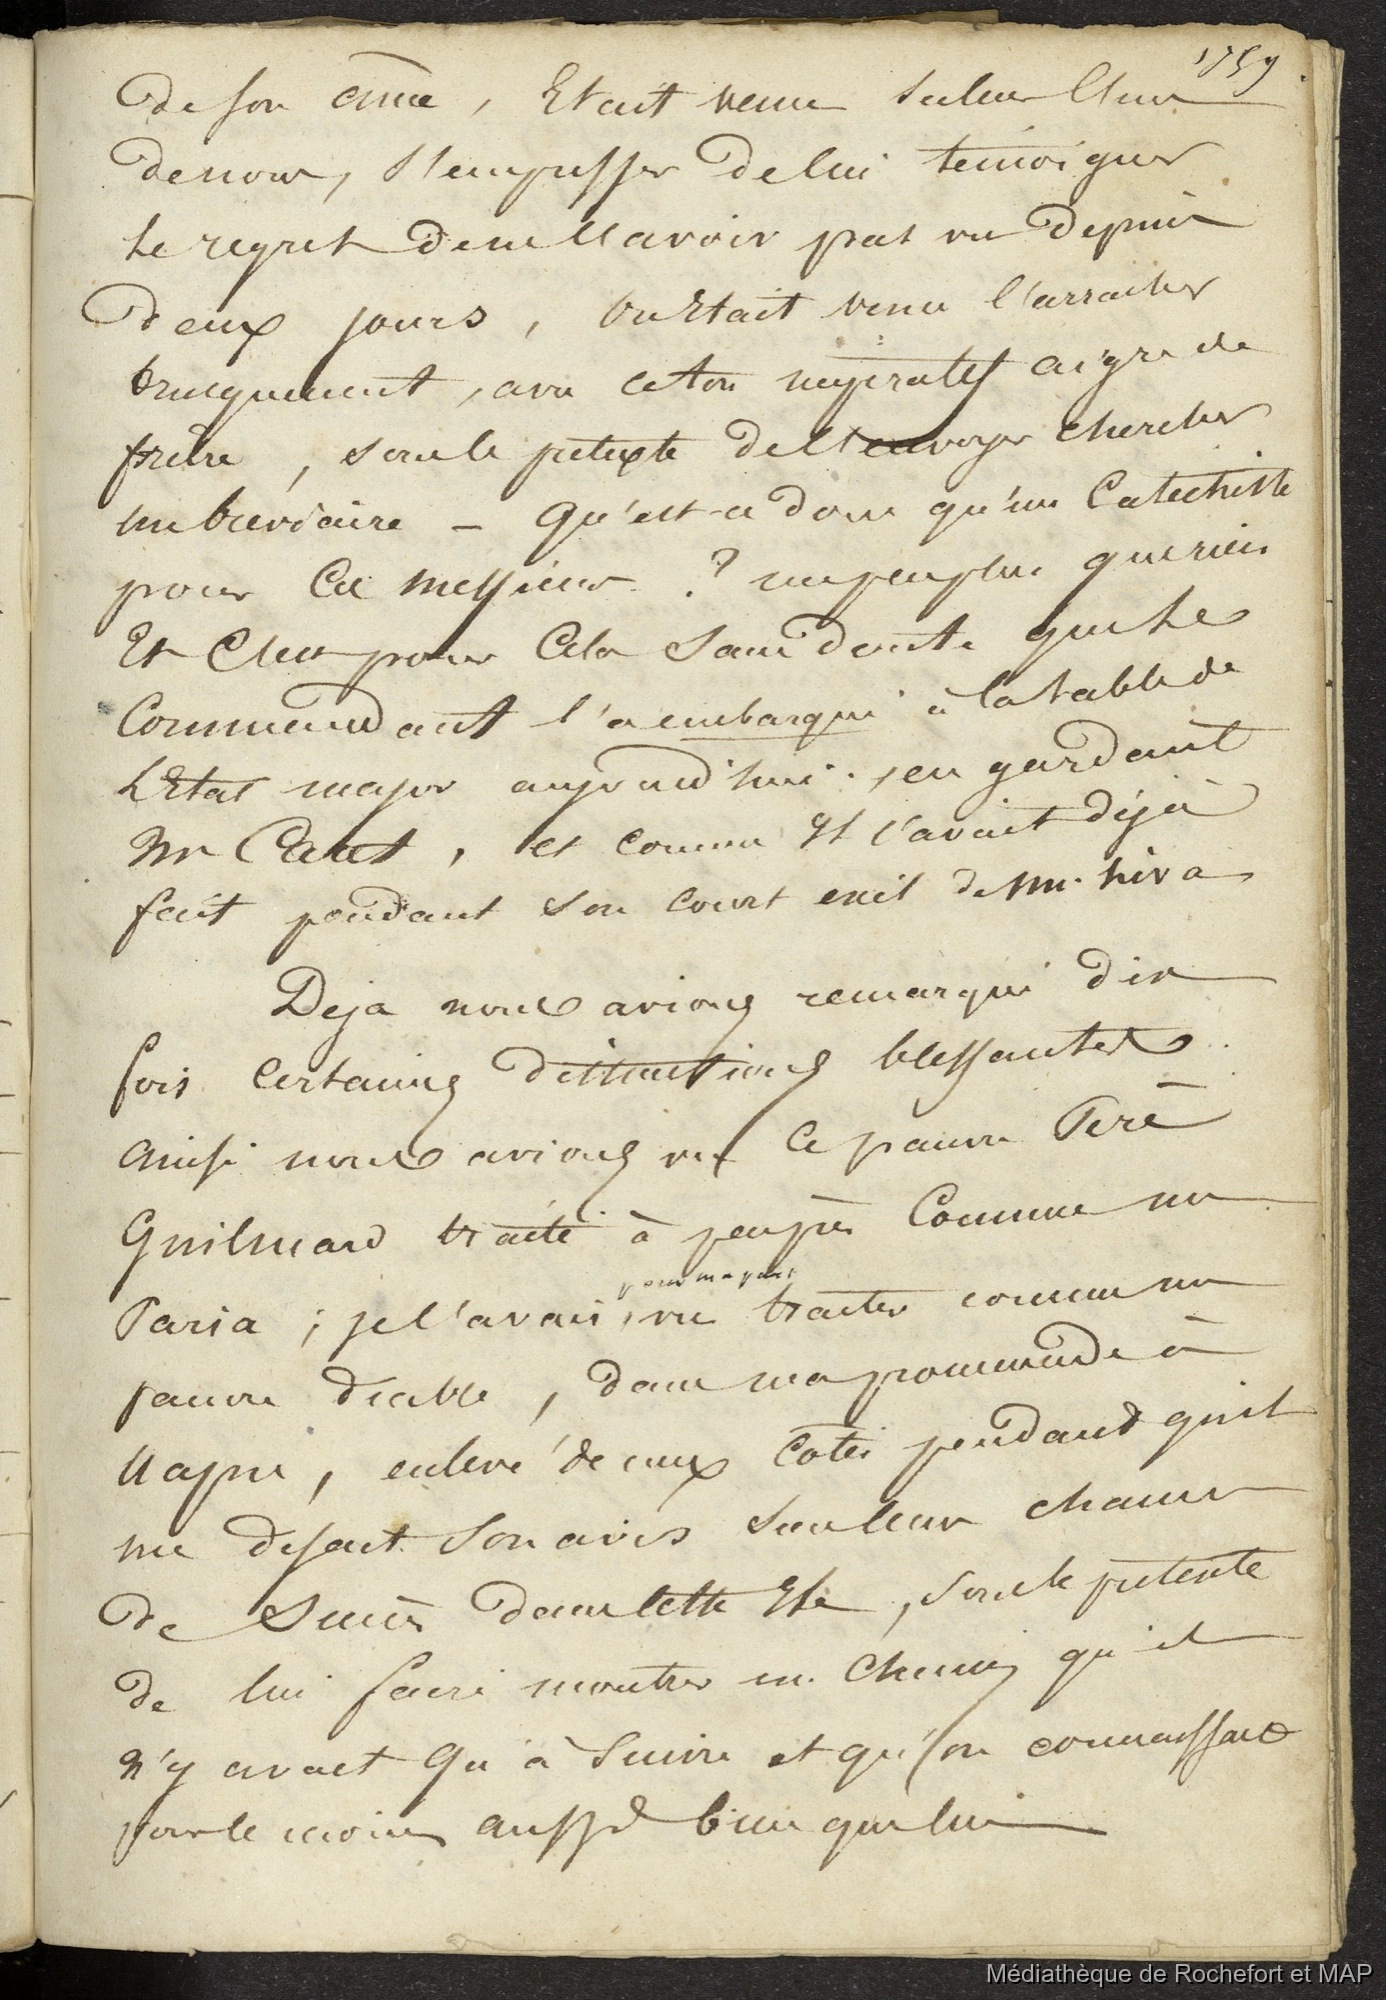 1759
de son ame, Etait venu saluer l'un
de nous, s'empresser de lui temoigner
le regret de ne l'avoir pas vu depuis
deux jours, on Etait venu l'arracher
brusquement, avec ce ton imperatif aigre de
frère, sous le pretexte de l'envoyer chercher
un breviaire – qu'est-ce donc qu'un Catechiste
pour Ces Messieurs ? un peu plus que rien
Et C'est pour Cela sans doute que le
Commandant l'a embarqué à la table de
l'Etat major aujourd'hui, en gardant
Mr , et comme Il l'avait déjà
fait pendant son court exil de mr. hiva
Deja nous avions remarqué dix
fois certaines distinctions blessantes
ainsi nous avions vu le pauvre Père
Guilmard traité à peu près Comme un
Paria ; je l'avais, vu traiter comme un
pour ma part
pauvre diable, dans ma promenade à
Uapu, enlevé de mes Cotés pendant qu'il
me disait Son avis sur leur chance
de Succès dans cette Ile, sous le pretexte
de lui faire montrer un Chemin qu'il
n'y avait qu'à Suivre et qu'on connaissait
pour le moins aussi bien que lui
Médiathèque de Rochefort et MAP